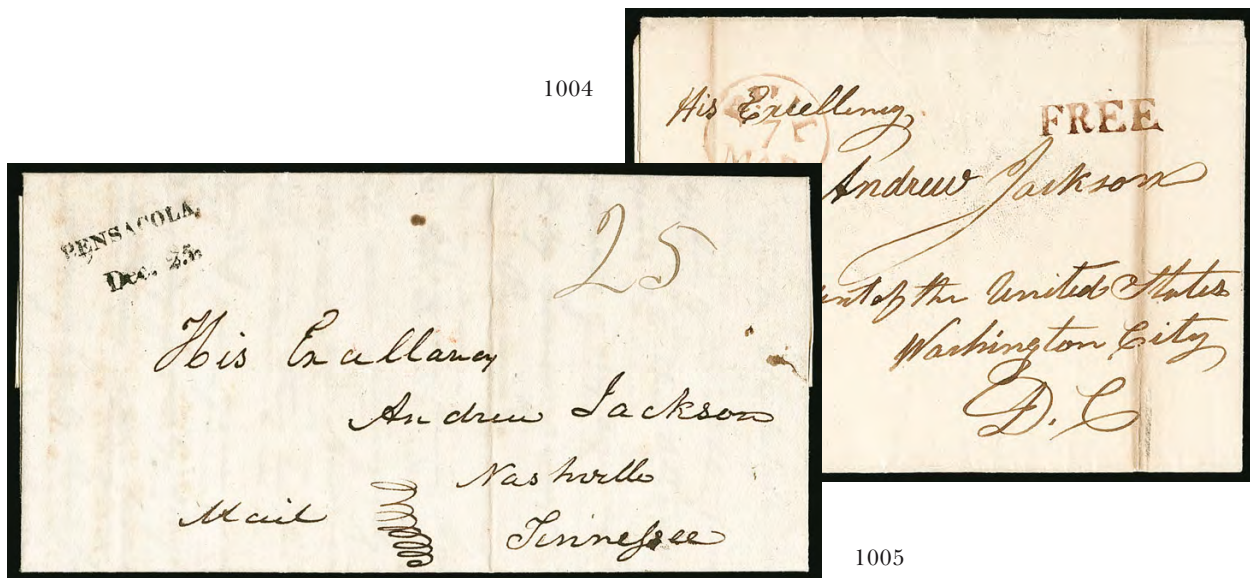 1004
His Excellency
FREE
7
MAR
Andrew Jackson
ent of the United States
Washington City
D. C
PENSACOLA,
Dec. 25.
25
His Excellancy
Andrew Jackson
Nashville
Mail
Tinnessee
1005